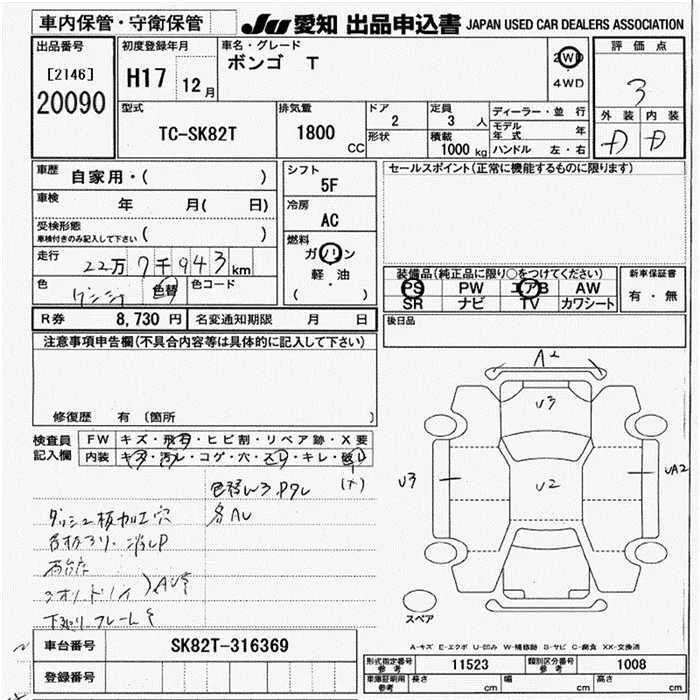 車内保管・守衛保管
JU 愛知 出品申込書 JAPAN USED CAR DEALERS ASSOCIATION
出品番号
[2146]
20090
初度登録年月
H17 12月
車名・グレード
ボンゴ T
2WD
4WD
評価点
3
外装 内装
D D
型式
TC-SK82T
排気量
1800 CC
ドア
2
形状
定員
3 人
積載
1000 kg
ディーラー・並行
モデル年式 年
ハンドル 左・右
車歴
自家用・( )
車検
年 月( 日)
受検形態
車検付きのみ記入して下さい ( )
走行
22万7千943km
色 色替 色コード
R券 8,730 円 名変通知期限 月 日
シフト
5F
冷房
AC
燃料
ガソリン
軽・油
( )
セールスポイント(正常に機能するものに限ります)
装備品(純正品に限り○をつけてください)
PS PW エアB AW
SR ナビ TV カワシート
新車保証書
有・無
後日品
注意事項申告欄(不具合内容等は具体的に記入して下さい)
修復歴 有 (箇所 )
検査員
記入欄
FW キズ・飛石・ヒビ割・リペア跡・X要
内装 キズ・汚レ・コゲ・穴・スレ・キレ・破レ
(大)
色替W3 Pクレ
各AU
ダッシュ板加工穴
A2
U3
U3
U2
UA2
スペア
A-キズ E-エクボ U-凹み W-補修跡 S-サビ C-腐食 XX-交換済
車台番号 SK82T-316369
登録番号
形式指定番号
参考
11523
類別区分番号
参考
1008
車庫証明用
参考
長さ cm 幅 cm 高さ cm